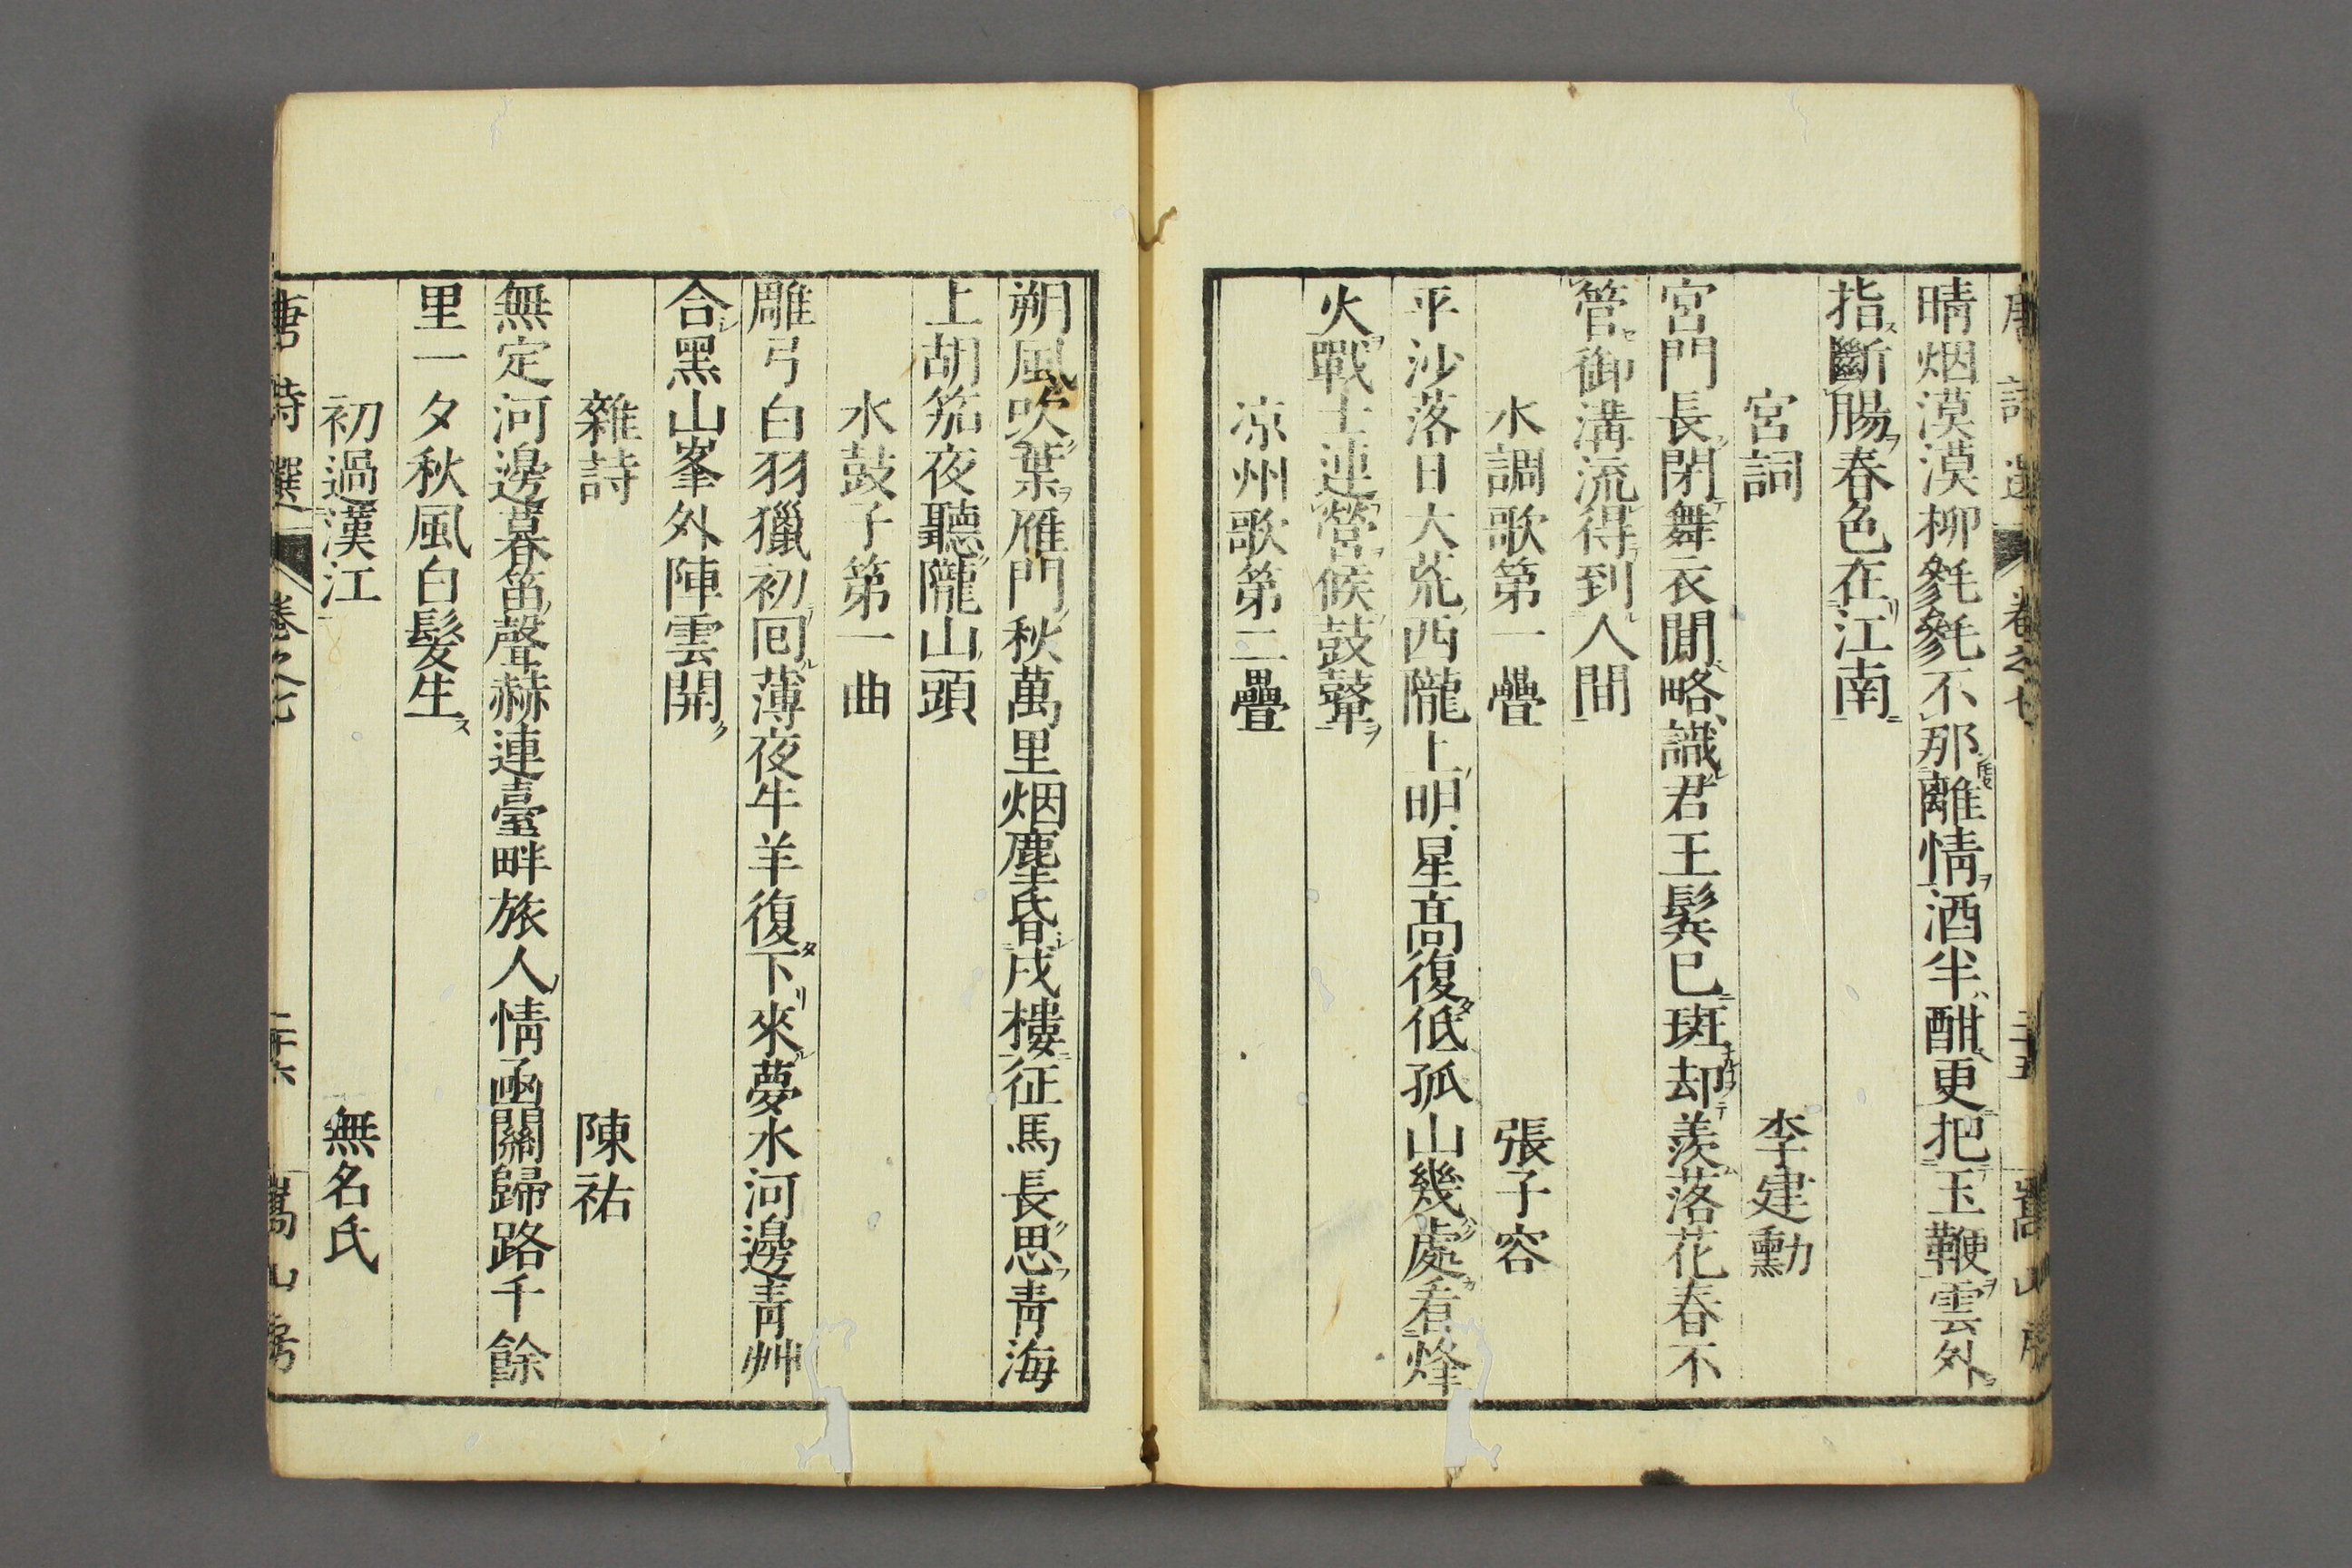 唐詩選 卷之七 二十五 嵩山房
晴烟漠漠柳毿毿不那離情酒半酣更把玉鞭雲外
指斷腸春色在江南
宮詞 李建勳
宮門長閉舞衣閒略識君王鬂巳斑却羨落花春不
管御溝流得到人間
水調歌第一疊 張子容
平沙落日大荒西隴上明星高復低孤山幾處看烽
火戰士連營候鼓鼙
凉州歌第二疊
朔風吹葉雁門秋萬里烟塵昏戍樓征馬長思青海
上胡笳夜聽隴山頭
水鼓子第一曲
雕弓白羽獵初囘薄夜牛羊復下來夢水河邊青艸
合黑山峯外陣雲開
雜詩 陳祐
無定河邊暮笛聲赫連臺畔旅人情函關歸路千餘
里一夕秋風白髮生
初過漢江 無名氏
唐詩選 卷之七 二十六 嵩山房